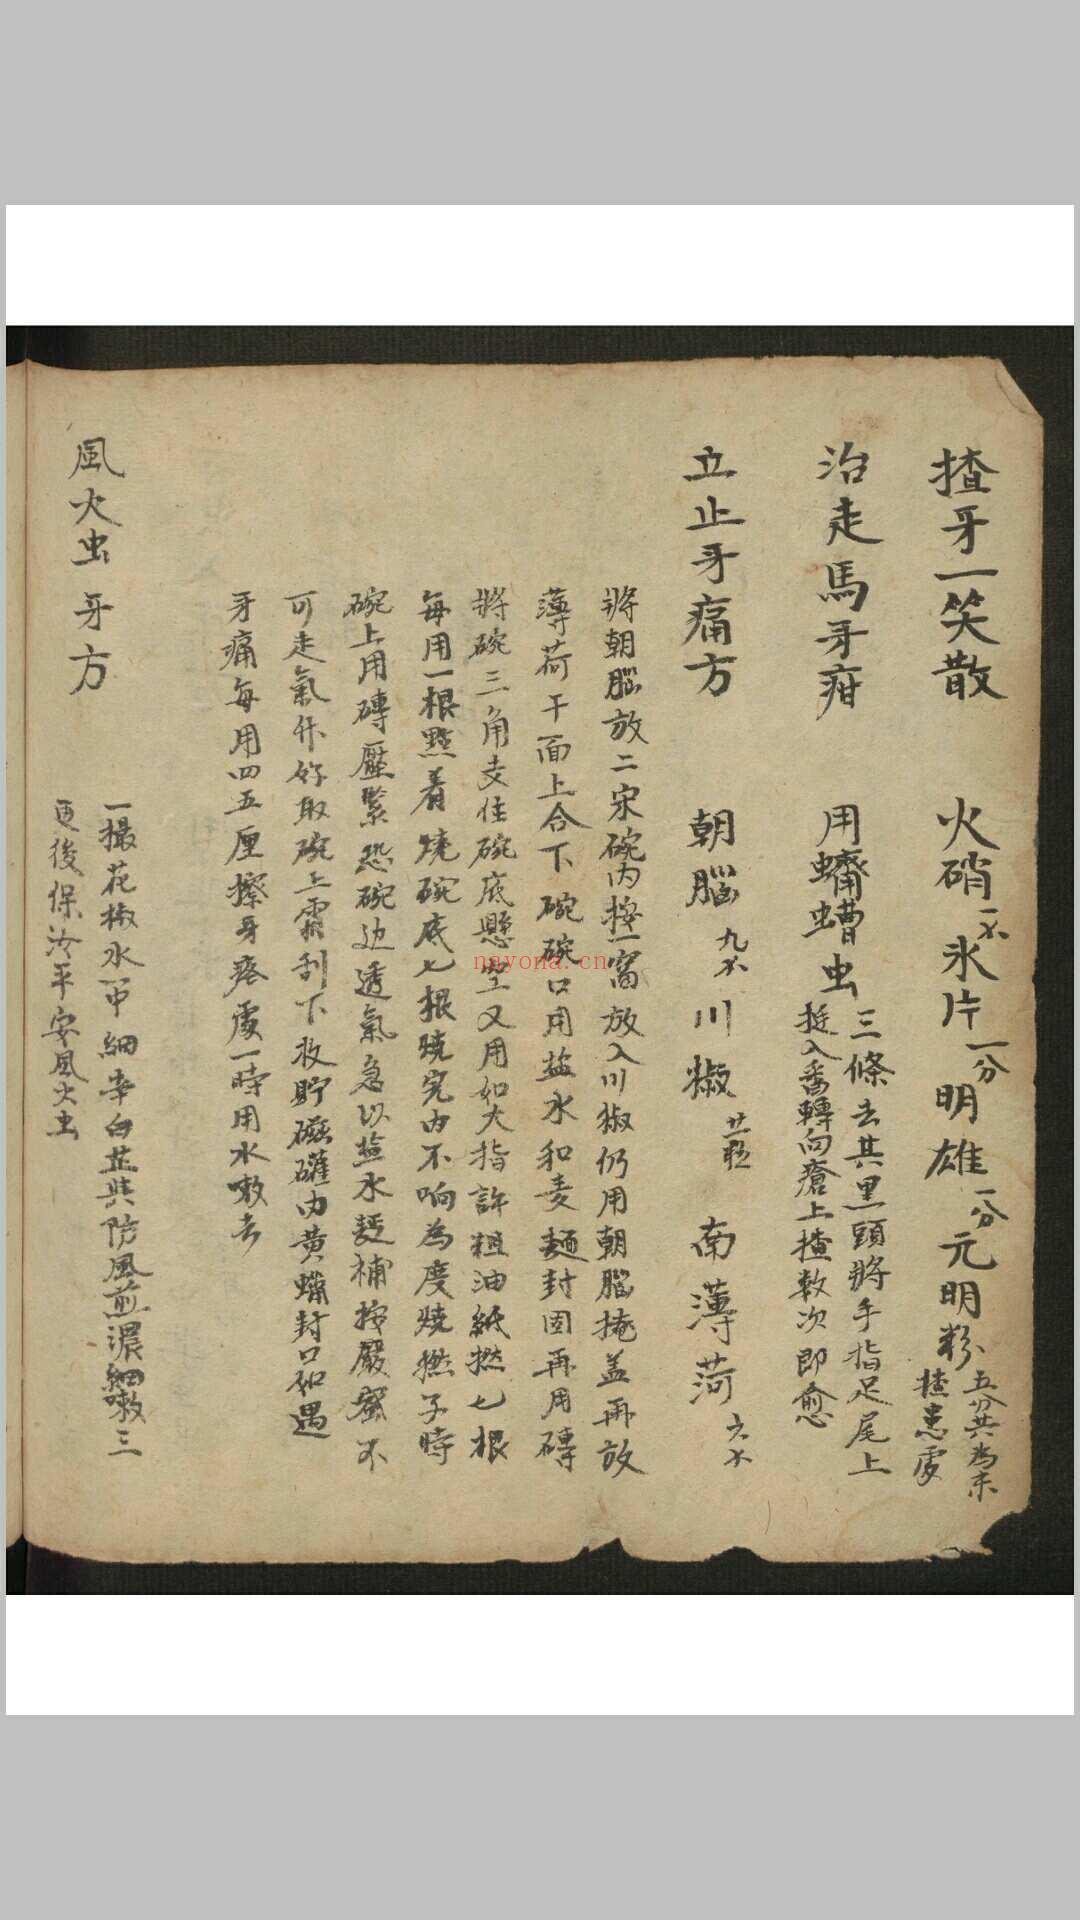 揸牙一笑散 火硝一不 氷片一分 明雄一分 元明粉五分共為末
揸患處
治走馬牙疳 用蠐螬虫三條去其黑頭將手指足尾上
挺入番轉向瘡上揸数次即愈
立止牙痛方 朝腦九不 川椒 南薄荷六不
將朝腦放二宋碗内按一窩放入川椒仍用朝腦掩盖再放
薄荷干面上合下碗碗口用盐水和麦麺封固再用磚
將碗三角支住碗底懸空又用如大指許粗油紙撚七根
每用一根點着燒碗底七根燒完内不响為度燒撚子時
碗上用磚壓緊恐碗边透氣急以盐水麺補按嚴密不
可走氣作好取碗上霜刮下收貯磁礶内黄蠟封口如遇
牙痛每用四五厘擦牙疼處一時用水嗽去
風火虫牙方
一撮花椒水中細辛白芷共防風煎濃細嗽三
更後保汝平安風火虫
nayona.cn